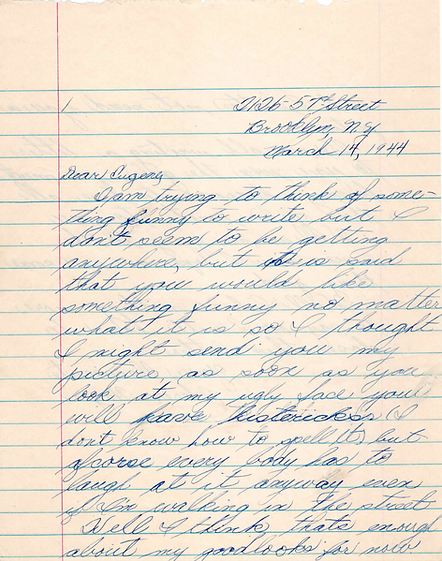 1
2126-57th Street
Brooklyn, N.Y
March 14, 1944
Dear Eugene,
I am trying to think of some-
thing funny to write but I
don't seem to be getting
anywhere, but is said
that you would like
something funny no matter
what it is so I thought
I night send you my
picture, as soon as you
look at my ugly face you
will have histericks I
dont know how to spell it, but
ofcorse every body has to
laugh at it anyway even
if I'm walking in the street
Well I think thats enough
about my goodlooks for now